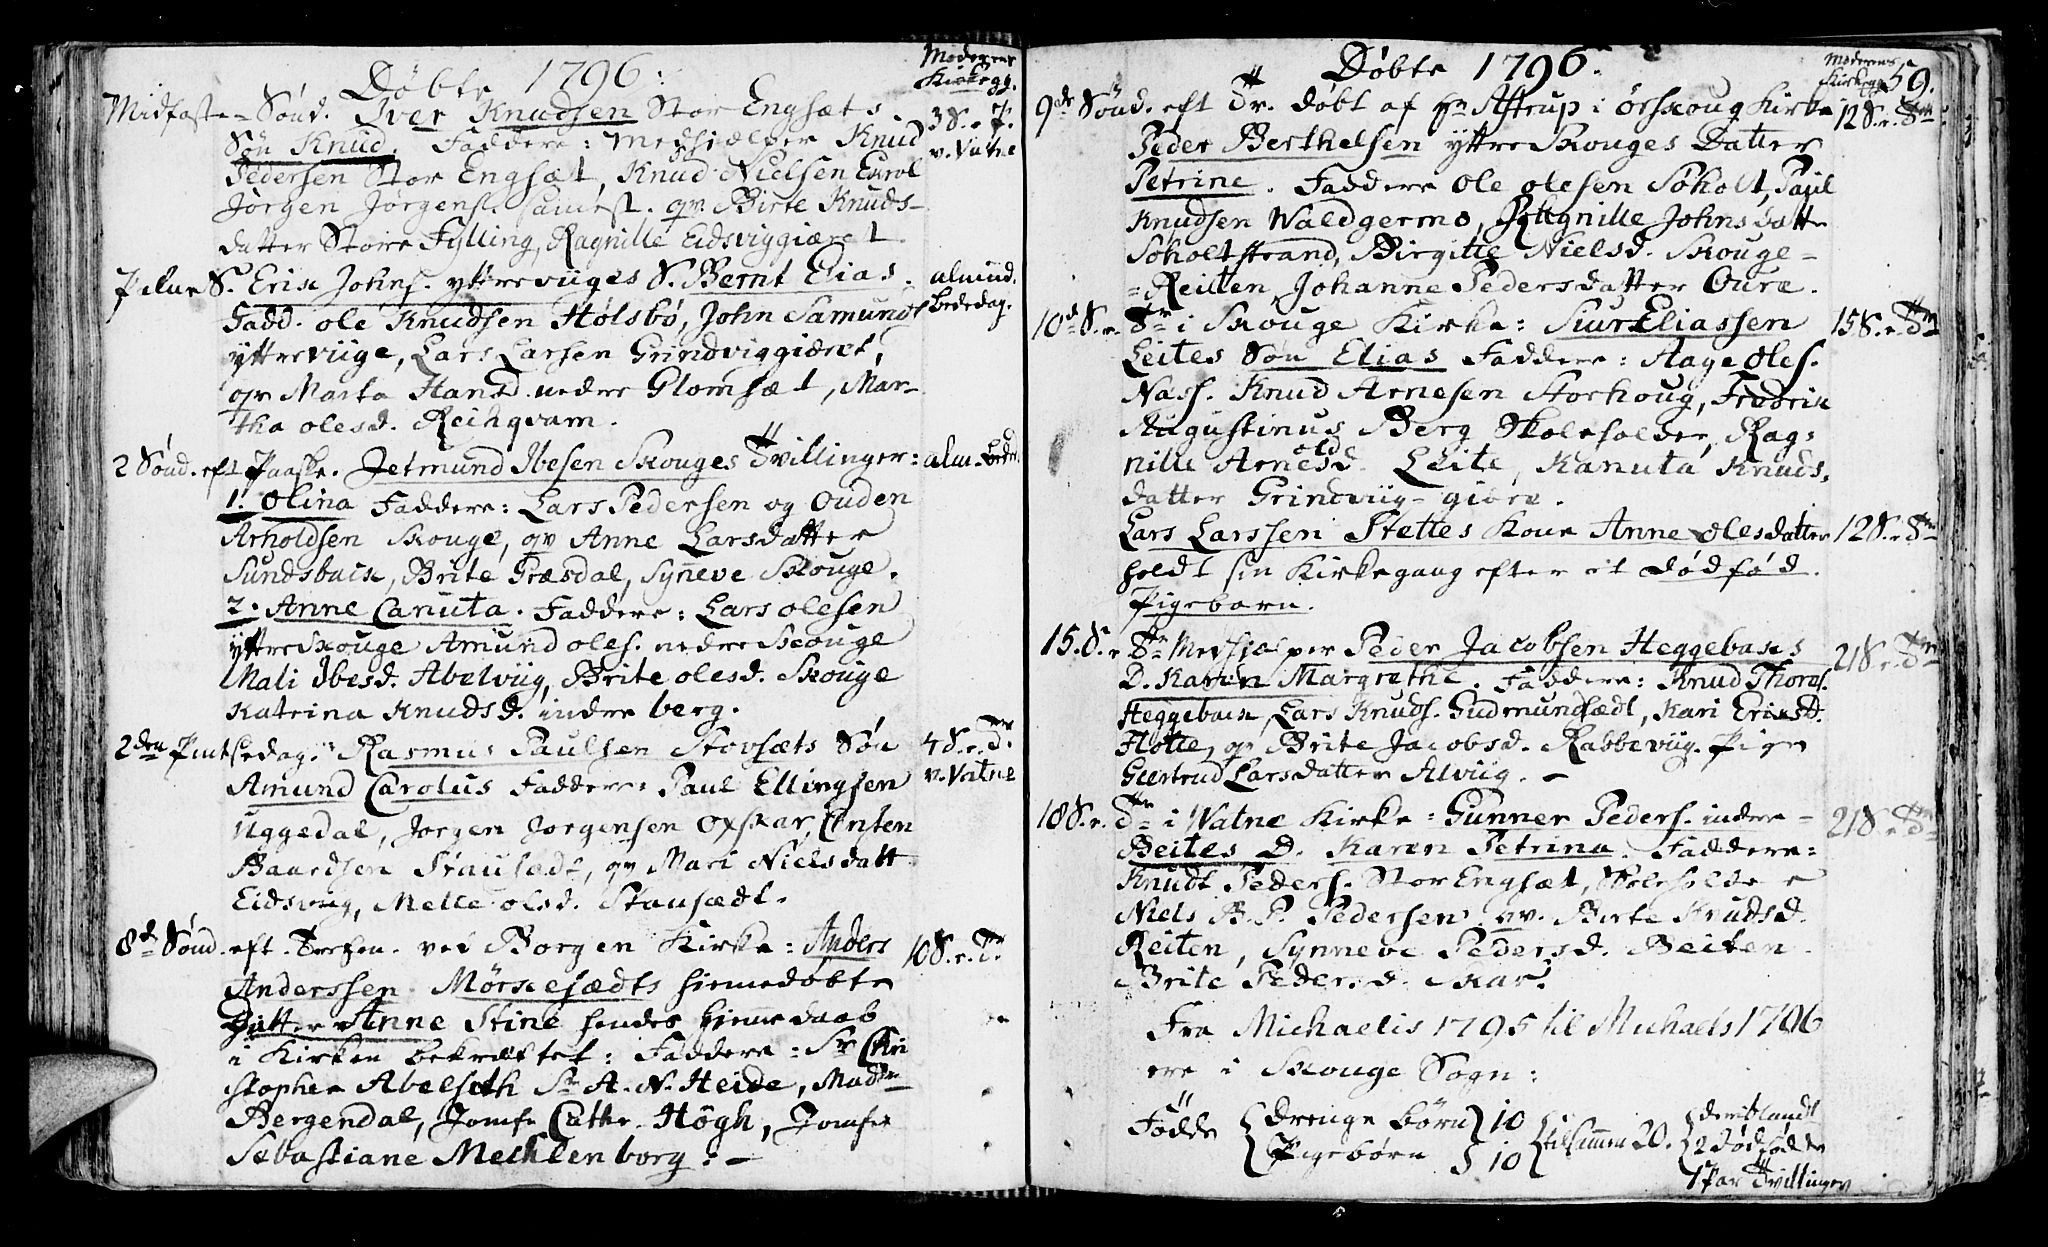 Döbte 1796:
Moderens
Kirkegg.
Midfaste-Sönd. Iver Knudsen Stor Engsæts
3 S. e. P.
v. Vatne
Sön Knud. Faddere: Medhielper Knud
Pedersen Stor Engsæt, Knud Nielsen Exrol
Jörgen Jörgens. samest. qv Birte Knuds-
datter Store Fylling, Ragnille Eidsviggiæret.
Palme S. Erik Johns. yttre viiges S. Bernt Elias.
almind.
Bededag.
Fadd. ole Knudsen Holsbö, John Samunds
yttre viige, Lars Larsen Grindviggiæret,
qv Marta Hansd nedre Glomsæt, Mar-
tha olesd. Reihqvam.
2 Sönd. eft Paaske. Jetmund Ibesen Skouges Tvillinger:
alm. Bede
1. Olina Faddere: Lars Pedersen og Ouden
Arholdsen Skouge, qv Anne Larsdatter
Sundsbaik, Brite Græsdal, Synneve Skouge.
2. Anne Canuta. Faddere: Lars olesen
yttre Skouge Amund oles. nedre Skouge
Mali Ibesd. Abelviig, Brite olesd. Skouge
Katrina Knudsd. indre berg.
2den Pintsedag. Rasmus Paulsen Stovsæts Sön
4 S. e. Tr.
v. Vatne
Amund Carolus Faddere: Paul Ellingsen
Uggedal, Jorgen Jorgensen Oxskar, Enten
Baardsen Stausædt, qv Mari Nielsdatt
Eidsviig, Mette olsd. Stausædt.
8d Sönd. eft. Trefen. ved Borgen Kirke: Anders
10 S. e. Tr
Anderssen Mörsesædts hiemedöbte
Datter Anne Stine hendes hiemedaab
i Kirken bekræftet: Faddere: Sr Chri
stopher Abelseth Sr A. N. Heide, Madm
Bergendal, Jomfr Cathr. Högh, Jomfru
Sebastiane Mechlenborg. -
Döbte 1796.
Moderens
Kirkegg
59.
9de Sönd. eft Tr. döbt af Hr Astrup i Örskoug Kirke
12 S. e. Trn
Peder Berthelsen yttre Skouges Datter
Petrine. Faddere Ole Olesen Söholt, Paul
Knudsen Waldgermo, Ragnille Johnsdatter
Soholtstrand, Birgitte Nielsd. Skouge-
-Reiten Johanne Pedersdatter Oure.
10d S. e. Tr i Skouge Kirke: Siur Eliassen
15 S. e. Trn
Leites Sön Elias Faddere: Aage Oles.
Næss. Knud Arnesen Storhoug, Fredrik
Augustinus Berg Skoleholder, Rag-
nille Arnesd Leite, Kanuta Knuds,
datter Grindviig-giöre.
Lars Larssen Stettes Kone Anne Olesdatter
12 S. e. Trn
holdt sin Kirkegang efter et dödföd.
Pigebarn.
15. S. e Tr Medhielper Peder Jacobsen Heggebaks
21 S. e. Trn
D. Karen Margrethe. Faddere: Knud Thoros.
Heggebak, Lars Knuds. Gudmundsædt, Kari Eriksd.
Flotte, qv Brite Jacobsd. Rabbeviig. Pige
Geertrud Larsdatter Alviig. -
18 S. e. Tr i Watne Kirke: Gunner Peders. indre-
21 S. e. Tr
Beites D. Karen Petrina. Faddere:
Knudt Peders. Stor Engsæt, Skoleholder
Niels B. P. Pedersen, qv. Birte Knudsd.
Reiten, Synneve Pedersd. Beiten
Brite Peders.d. Skar.
Fra Michaelis 1795 til Michaels 1796
ere i Skouge Sogn:
Födde { Drenge börn } 10 { tilsammen 20. { deriblandt
Pigebörn } 10 2 Dödfödde
1 Par Tvillinger